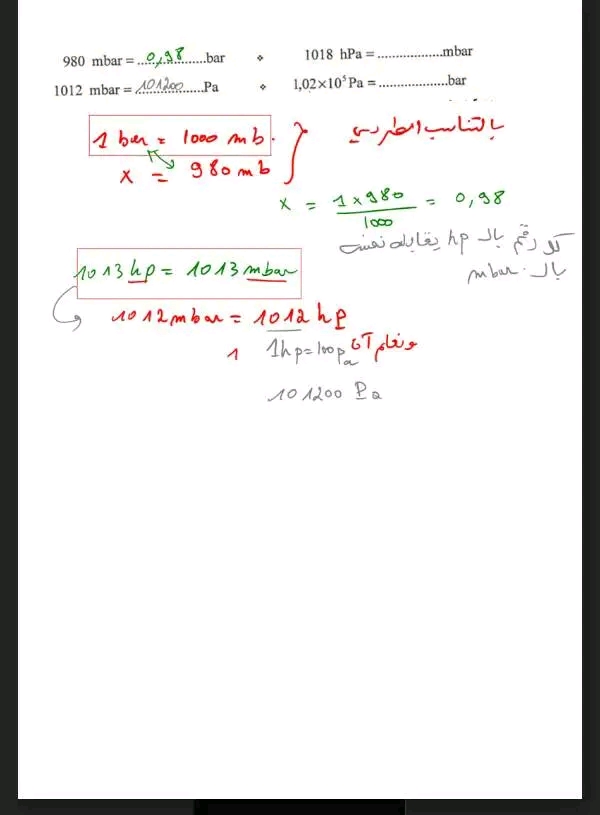 980 mbar = ....0,98....bar ❖ 1018 hPa = ..................mbar
1012 mbar = ...101200...Pa ❖ 1,02×10⁵Pa = ..................bar
1 bar = 1000 mb. } بالتناسب الطردي
x = 980 mb
x = 1 x 980 / 1000 = 0,98
كل رقم بال hp يقابله نفسه
بال mbar.
1013 hp = 1013 mbar
1012 mbar = 1012 hp
1 1hp = 100 Pa ونعلم أن
101200 Pa